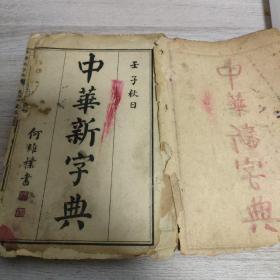 壬子秋日
中華新字典
何維樸書
中華
字典